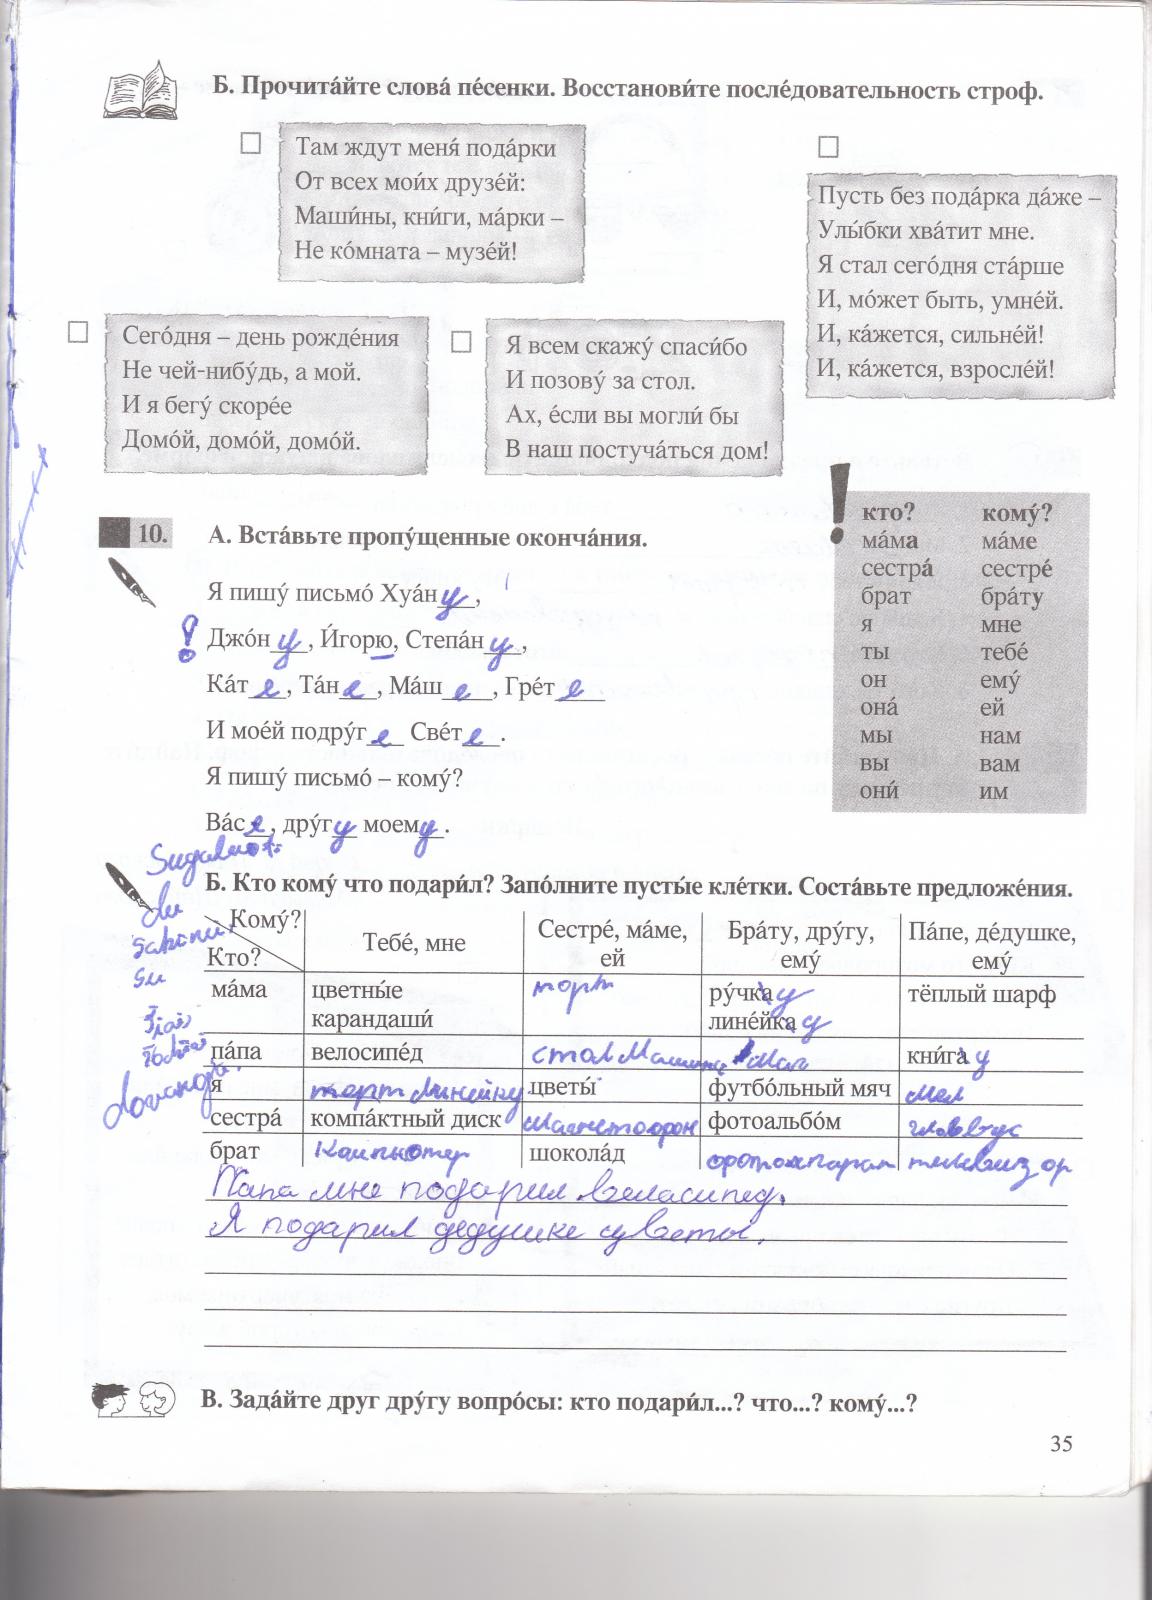 Б. Прочита́йте слова́ пе́сенки. Восстанови́те после́довательность строф.
Там ждут меня́ пода́рки
От всех мои́х друзе́й:
Маши́ны, кни́ги, ма́рки –
Не ко́мната – музе́й!
Пусть без пода́рка да́же –
Улы́бки хва́тит мне.
Я стал сего́дня ста́рше
И, мо́жет быть, умне́й.
И, ка́жется, сильне́й!
И, ка́жется, взросле́й!
Сего́дня – день рожде́ния
Не чей-нибу́дь, а мой.
И я бегу́ скоре́е
Домо́й, домо́й, домо́й.
Я всем скажу́ спаси́бо
И позову́ за стол.
Ах, е́сли вы могли́ бы
В наш постуча́ться дом!
! кто? кому́?
ма́ма ма́ме
сестра́ сестре́
брат бра́ту
я мне
ты тебе́
он ему́
она́ ей
мы нам
вы вам
они́ им
10. А. Вста́вьте пропу́щенные оконча́ния.
Я пишу́ письмо́ Хуа́н у,
! Джо́н у, И́горю, Степа́н у,
Ка́т е, Та́н е, Ма́ш е, Гре́т е
И мое́й подру́г е Све́т е.
Я пишу́ письмо́ – кому́?
Ва́с е, дру́г у моем у.
Б. Кто кому́ что подари́л? Запо́лните пусты́е кле́тки. Соста́вьте предложе́ния.
Кому́? Тебе́, мне Сестре́, ма́ме, Бра́ту, дру́гу, Па́пе, де́душке,
Кто? ей ему́ ему́
ма́ма цветны́е торт ру́чка у тёплый шарф
карандаши́ лине́йка у
па́па велосипе́д стол кни́га у
я торт линейку цветы́ футбо́льный мяч
сестра́ компа́ктный диск фотоальбо́м
брат шокола́д
Папа мне подарил веласипед.
Я подарил дедушке цветы.
В. Зада́йте друг дру́гу вопро́сы: кто подари́л...? что...? кому́...?
35